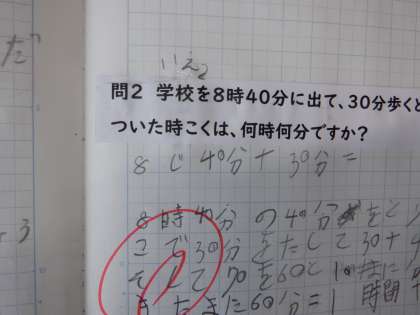 いえ
問2 学校を8時40分に出て、30分歩くと
ついた時こくは、何時何分ですか?
8じ40分+30分=
8時40分の40分をと
こで30分をたして30+4
そして70を60と10に
またまた60分=1時間
た
3